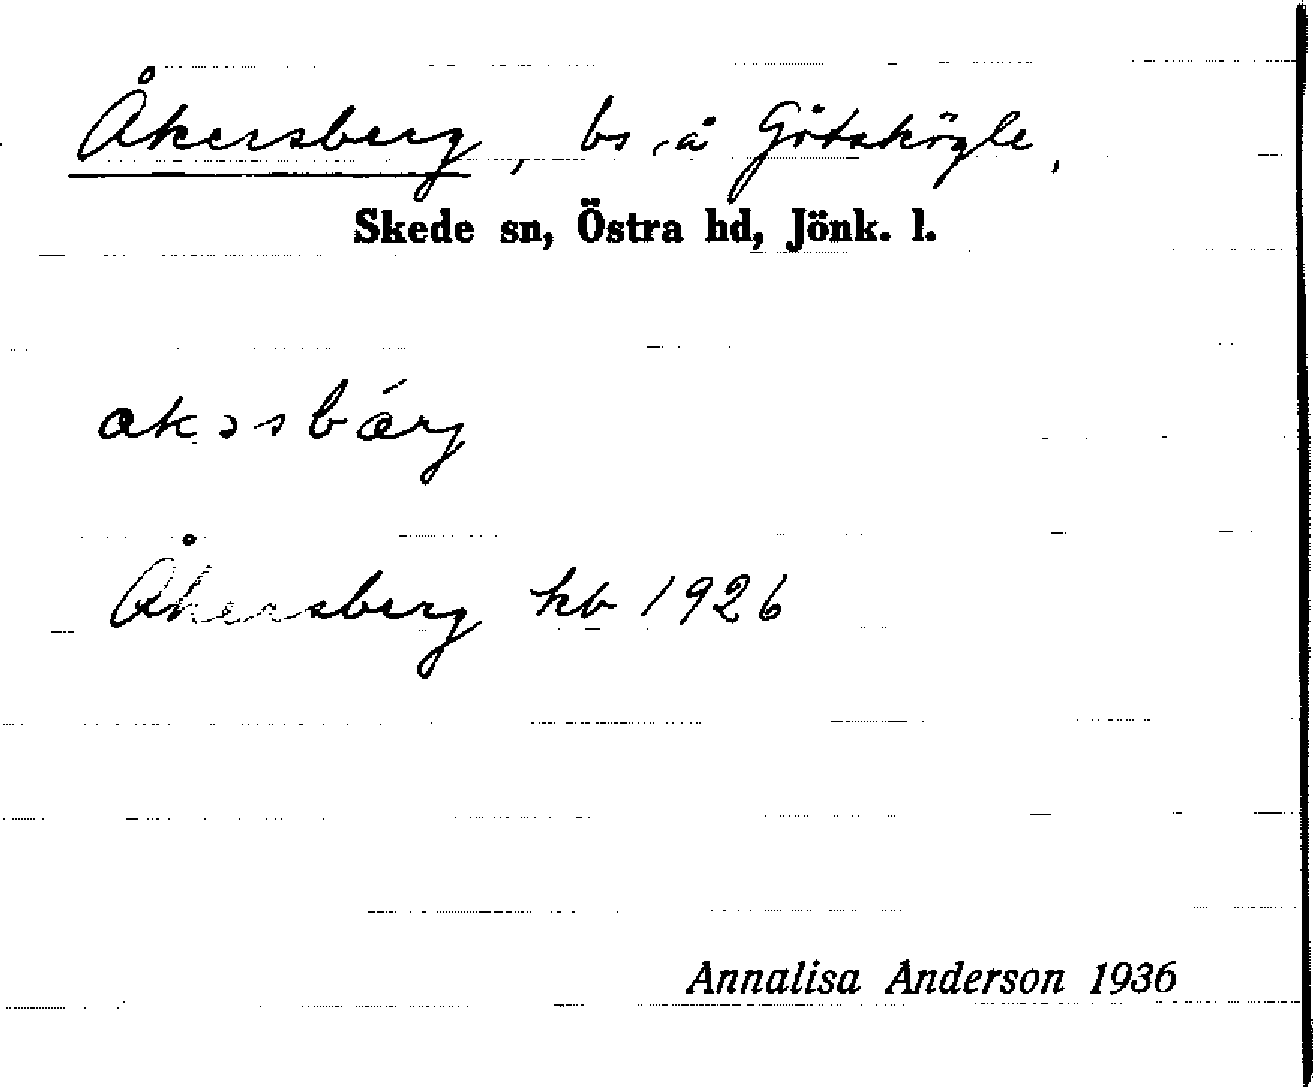 Åkersberg, bs å Götaskögle,
Skede sn, Östra hd, Jönk. l.
akəsbǽrg
Åkersberg kb 1926
Annalisa Anderson 1936